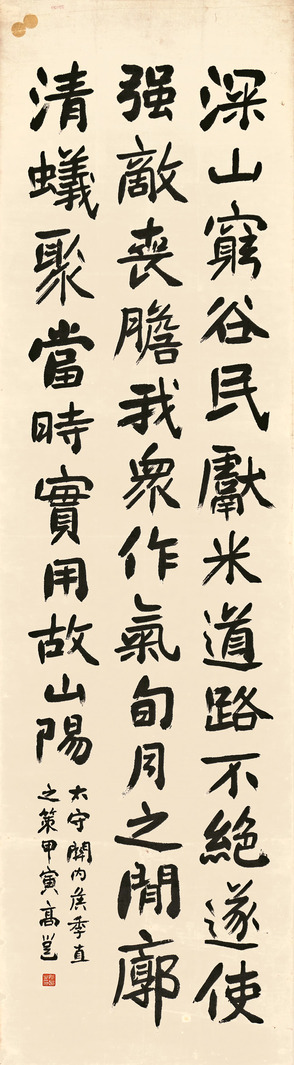 深山窮谷民獻米道路不絕遂使
强敵喪膽我眾作氣旬月之間廓
清蟻聚當時實用故山陽
太守關內侯季直
之策甲寅高邕